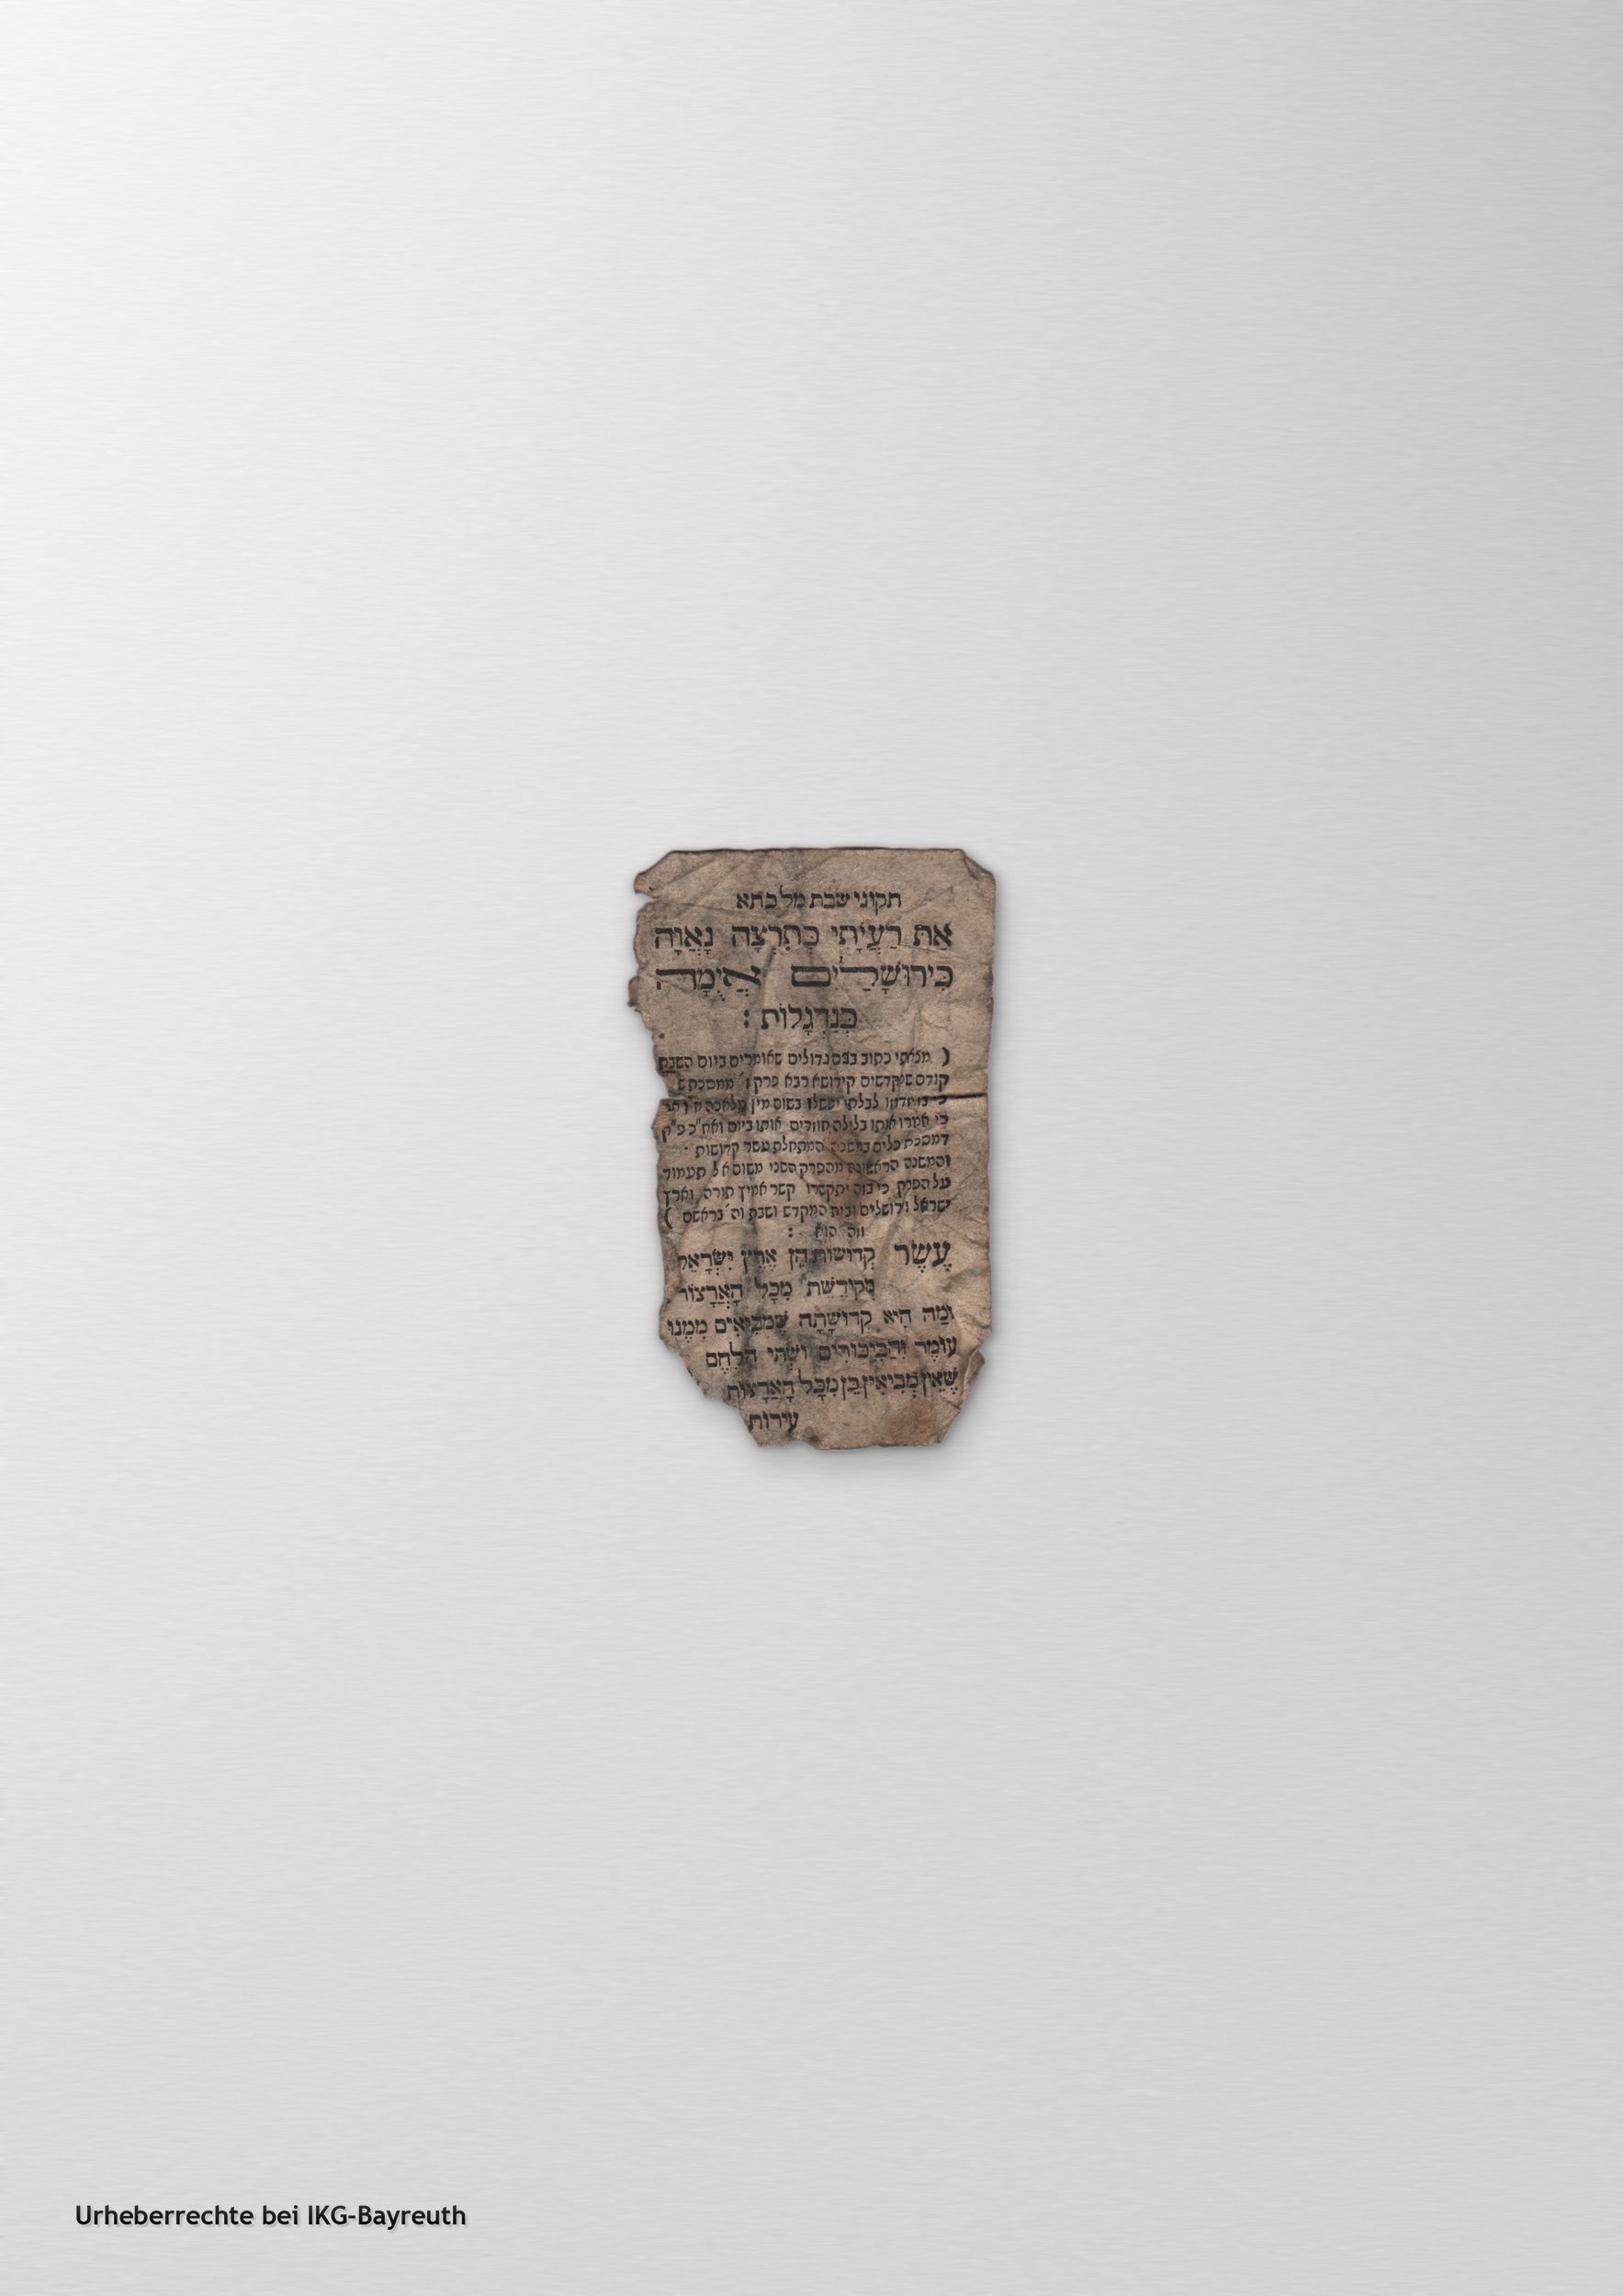 תקוני שבת מלכתא
אַתְּ רַעֲיָתִי כְּתִרְצָה נָאוָה
כִּירוּשָׁלַיִם אֲיֻמָּה
כַּנִּדְגָּלוֹת :
( מצאתי כתוב בשם גדולים שאומרים ביום השבת
קודם שמקדשים קידושא רבא פרק ו׳ ממסכת ש
לבלתי יכשלו בשום מין מלאכה
כי אמרו אותו בלילה חוזרים אותו ביום ואח"כ פ"ק
דמסכת כלים במשנה המתחלת עשר קדושות
והמשנה הראשונה מהפרק השני משום אל תעמוד
על הפרק כי בזה יתקשרו קשר אמיץ תורה וארץ
ישראל וירושלים ובית המקדש ושבת וה׳ בראשם )
וזה הוא :
עֶשֶׂר קְדוּשׁוֹת הֵן אֶרֶץ יִשְׂרָאֵל
מְקוּדֶּשֶׁת מִכָּל הָאֲרָצוֹת
וּמַה הִיא קְדוּשָׁתָהּ שֶׁמְּבִיאִים מִמֶּנּוּ
עוֹמֶר וְהַבִּיכּוּרִים וּשְׁתֵּי הַלֶּחֶם
שֶׁאֵין מְבִיאִין כֵּן מִכָּל הָאֲרָצוֹת
עירות
Urheberrechte bei IKG-Bayreuth